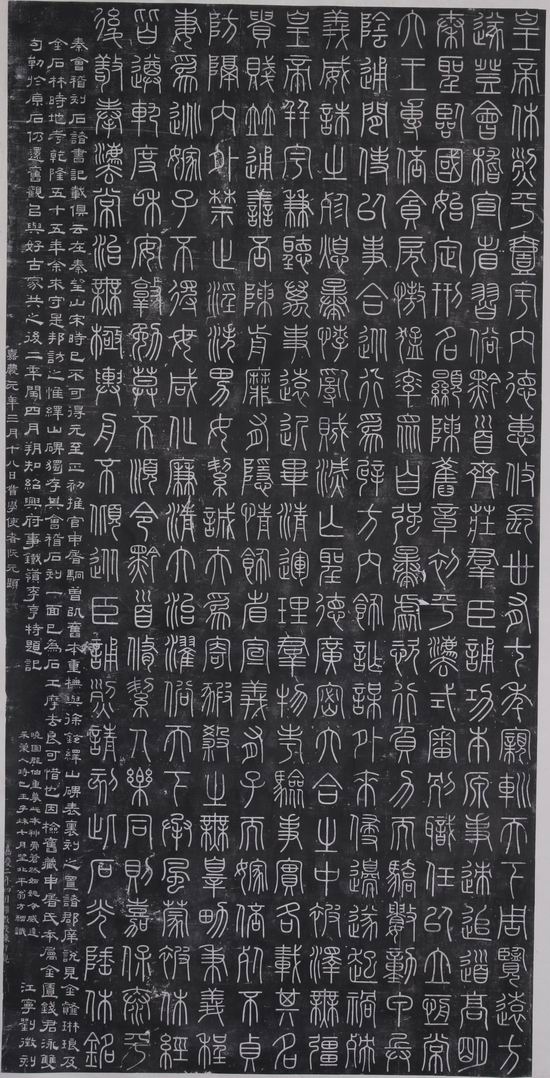 皇帝休烈平壹宇內德惠攸長卅有七年親軵天下周覽遠方
遂登會稽宣省習俗黔首齊莊群臣誦功本原事迹追道高明
秦聖臨國始定刑名顯陳舊章初平灋式審別職任以立恆常
六王專倍貪戾慠猛率眾自強暴虐恣行負力而驕數動甲兵
陰通閒使以事合從行為辟方內飾詐謀外來侵邊遂起禍殃
義威誅之殄熄暴悖亂賊滅亡聖德廣密六合之中被澤無疆
皇帝并宇兼聽萬事遠近畢清運理群物考驗事實各載其名
貴賤並通善否陳前靡有隱情飾省宣義有子而嫁倍死不貞
防隔內外禁止淫泆男女絜誠夫為寄豭殺之無辠男秉義程
妻為逃嫁子不得母咸化廉清大治濯俗天下承風蒙被休經
皆遵軌度和安敦勉莫不順令黔首脩絜人樂同則嘉保泰平
後敬奉灋常治無極輿舟不傾從臣誦烈請刻此石光陲休銘
秦會稽刻石諸書記載俱云在秦望山宋時已不可得元至正初推官申屠駉曾以舊本重橅與徐鉉繹山碑表裏刻之置諸郡庠說見金薤琳琅及
金石林時地考乾隆五十五年余來守是邦訪之惟繹山碑獨存其會稽石刻一面已為石工摩去良可惜也因檢舊藏申屠氏本屬金匱錢君泳雙
勾勒於原石仍還舊觀以與好古家共之後二年閏四月朔知紹興府事鐵嶺李亨特題記
江寧劉徵刻
嘉慶元年三月十八日督學使者阮元題